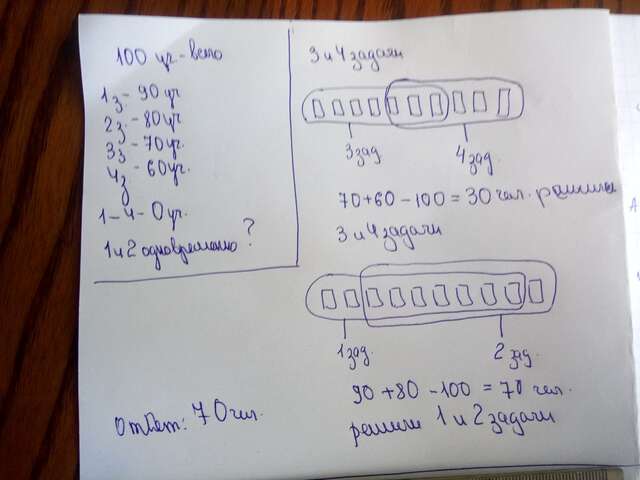 100 уч - всего
1з - 90 уч
2з. - 80 уч.
3з - 70 уч.
4з - 60 уч.
1-4 - 0 уч.
1 и 2 одновременно ?
Ответ: 70 чел.
3 и 4 задачи
3 зад
4 зад.
70+60-100 = 30 чел. решили
3 и 4 задачи
1 зад.
2 зад.
90 +80 -100 = 70 чел.
решили 1 и 2 задачи